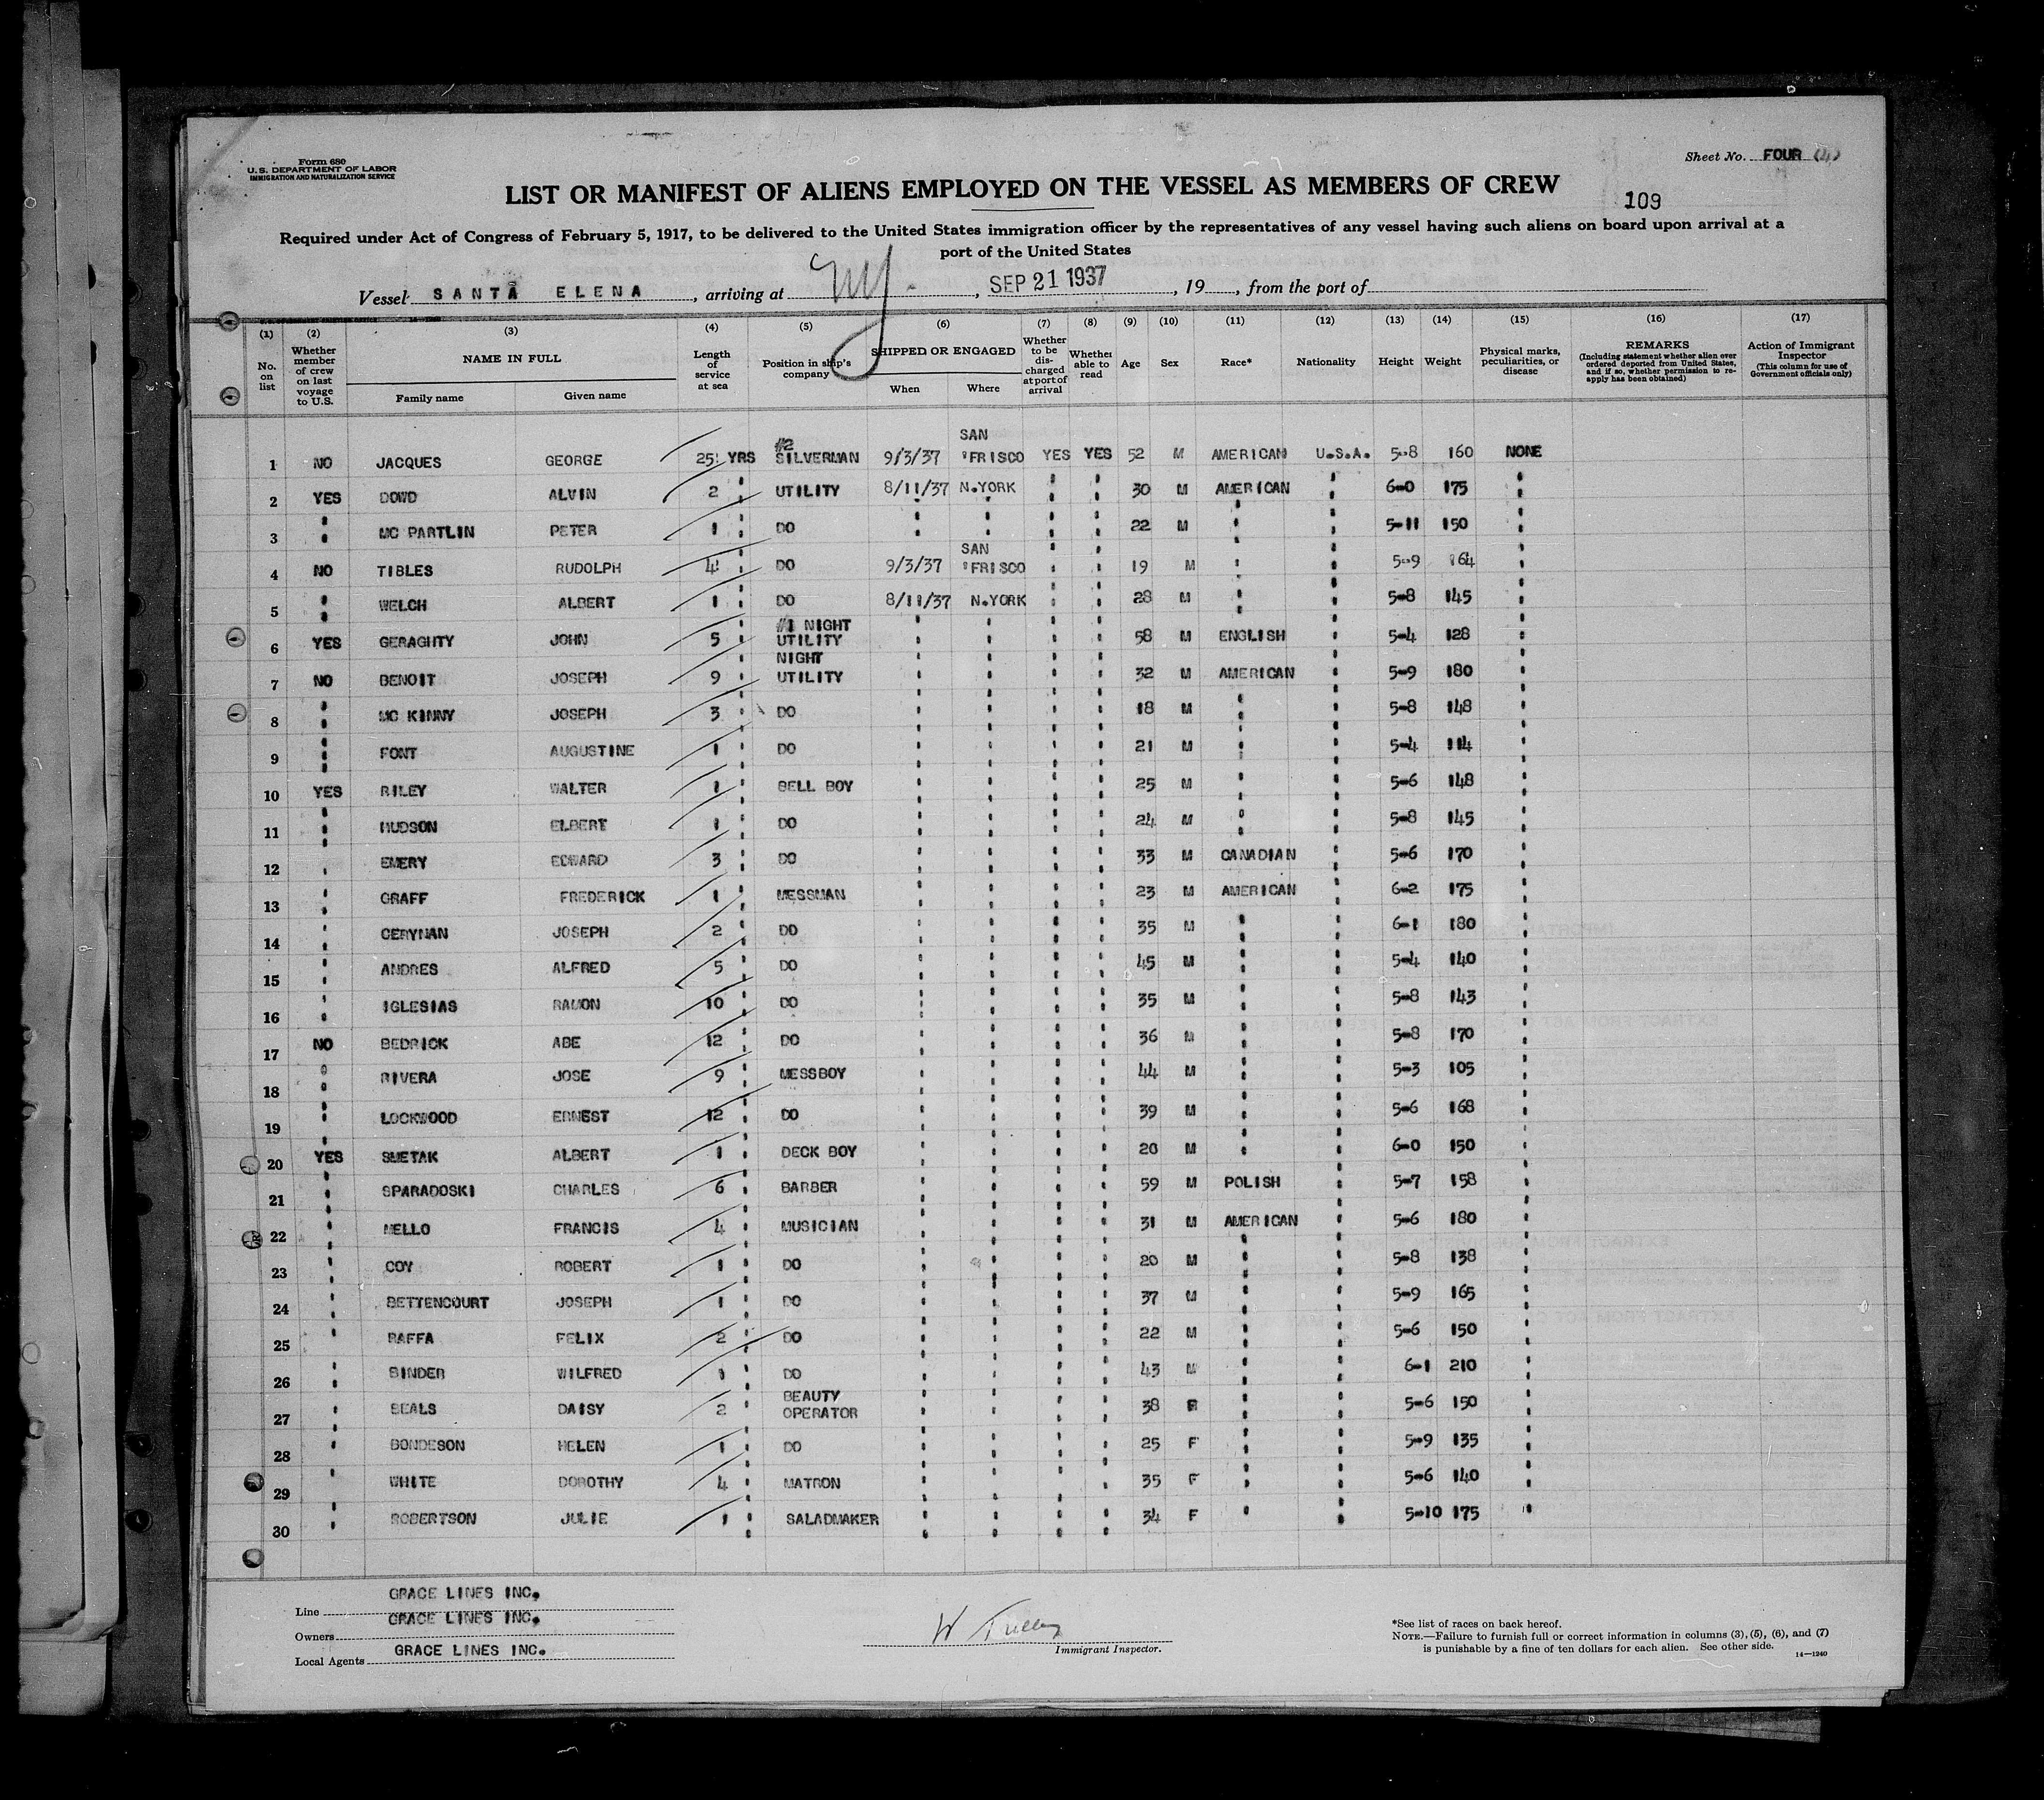 Form 680
U.S. DEPARTMENT OF LABOR
IMMIGRATION AND NATURALIZATION SERVICE
Sheet No. FOUR (4)
LIST OR MANIFEST OF ALIENS EMPLOYED ON THE VESSEL AS MEMBERS OF CREW
109
Required under Act of Congress of February 5, 1917, to be delivered to the United States immigration officer by the representatives of any vessel having such aliens on board upon arrival at a
port of the United States
Vessel SANTA ELENA, arriving at NY., SEP 21 1937, 19, from the port of
(1) (2) (3) (4) (5) (6) (7) (8) (9) (10) (11) (12) (13) (14) (15) (16) (17)
No. on list Whether member of crew on last voyage to U.S. NAME IN FULL Family name Given name Length of service at sea Position in ship's company SHIPPED OR ENGAGED When Where Whether to be discharged at port of arrival Whether able to read Age Sex Race* Nationality Height Weight Physical marks, peculiarities, or disease REMARKS (Including statement whether alien ever ordered deported from United States, and if so, whether permission to re-apply has been obtained) Action of Immigrant Inspector (This column for use of Government officials only)
1 NO JACQUES GEORGE 25 YRS #2 SILVERMAN 9/3/37 SAN 'FRISCO YES YES 52 M AMERICAN U.S.A. 5-8 160 NONE
2 YES DOWD ALVIN 2 " UTILITY 8/11/37 N.YORK " " 30 M AMERICAN " 6-0 175 "
3 " MC PARTLIN PETER 1 " DO " " " " 22 M " " 5-11 150 "
4 NO TIBLES RUDOLPH 4 " DO 9/3/37 SAN 'FRISCO " " 19 M " " 5-9 164 "
5 " WELCH ALBERT 1 " DO 8/11/37 N.YORK " " 28 M " " 5-8 145 "
6 YES GERAGHTY JOHN 5 " #1 NIGHT UTILITY " " " " 58 M ENGLISH " 5-4 128 "
7 NO BENOIT JOSEPH 9 " NIGHT UTILITY " " " " 32 M AMERICAN " 5-9 180 "
8 " MC KINNY JOSEPH 3 " DO " " " " 18 M " " 5-8 148 "
9 " FONT AUGUSTINE 1 " DO " " " " 21 M " " 5-4 114 "
10 YES RILEY WALTER 1 " BELL BOY " " " " 25 M " " 5-6 148 "
11 " HUDSON ELBERT 1 " DO " " " " 24 M " " 5-8 145 "
12 " EMERY EDWARD 3 " DO " " " " 33 M CANADIAN " 5-6 170 "
13 " GRAFF FREDERICK 1 " MESSMAN " " " " 23 M AMERICAN " 6-2 175 "
14 " CERYNAN JOSEPH 2 " DO " " " " 35 M " " 6-1 180 "
15 " ANDRES ALFRED 5 " DO " " " " 45 M " " 5-4 140 "
16 " IGLESIAS RAMON 10 " DO " " " " 35 M " " 5-8 143 "
17 NO BEDRICK ABE 12 " DO " " " " 36 M " " 5-8 170 "
18 " RIVERA JOSE 9 " MESSBOY " " " " 44 M " " 5-3 105 "
19 " LOCKWOOD ERNEST 12 " DO " " " " 39 M " " 5-6 168 "
20 YES SMETAK ALBERT 1 " DECK BOY " " " " 20 M " " 6-0 150 "
21 " SPARADOSKI CHARLES 6 " BARBER " " " " 59 M POLISH " 5-7 158 "
22 " MELLO FRANCIS 4 " MUSICIAN " " " " 31 M AMERICAN " 5-6 180 "
23 " COY ROBERT 1 " DO " " " " 20 M " " 5-8 138 "
24 " BETTENCOURT JOSEPH 1 " DO " " " " 37 M " " 5-9 165 "
25 " RAFFA FELIX 2 " DO " " " " 22 M " " 5-6 150 "
26 " BINDER WILFRED 1 " DO " " " " 43 M " " 6-1 210 "
27 " SEALS DAISY 2 " BEAUTY OPERATOR " " " " 38 F " " 5-6 150 "
28 " BONDESON HELEN 1 " DO " " " " 25 F " " 5-9 135 "
29 " WHITE DOROTHY 4 " MATRON " " " " 35 F " " 5-6 140 "
30 " ROBERTSON JULIE 1 " SALADMAKER " " " " 34 F " " 5-10 175 "
Line GRACE LINES INC.
Owners GRACE LINES INC.
Local Agents GRACE LINES INC.
W
Immigrant Inspector.
*See list of races on back hereof.
NOTE.—Failure to furnish full or correct information in columns (3), (5), (6), and (7)
is punishable by a fine of ten dollars for each alien. See other side.
14—1240